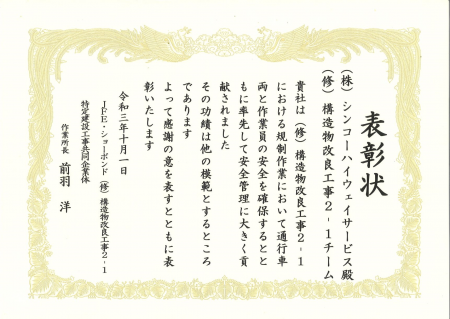 表彰状
(株)シンコーハイウェイサービス殿
(修)構造物改良工事2-1チーム
貴社は(修)構造物改良工事2-1
における規制作業において通行車
両と作業員の安全を確保するとと
もに率先して安全管理に大きく貢
献されました
その功績は他の模範とするところ
であります
よって感謝の意を表すとともに表
彰いたします
令和三年十月一日
JFE・ショーボンド(修)構造物改良工事2-1
特定建設工事共同企業体
作業所長 前羽 洋